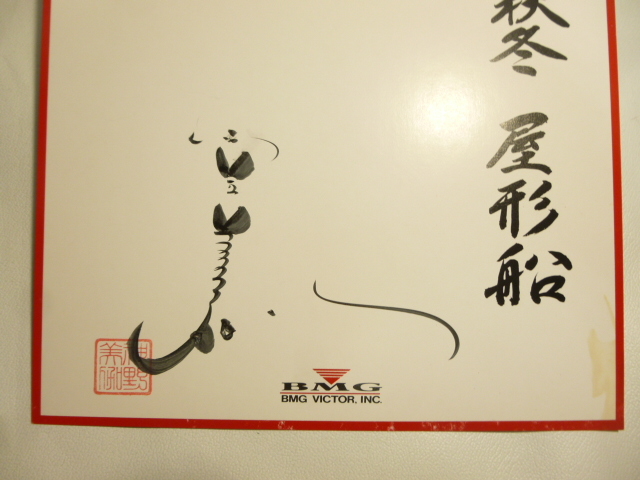 秋冬 屋形船
神野
美伽
BMG
BMG VICTOR, INC.